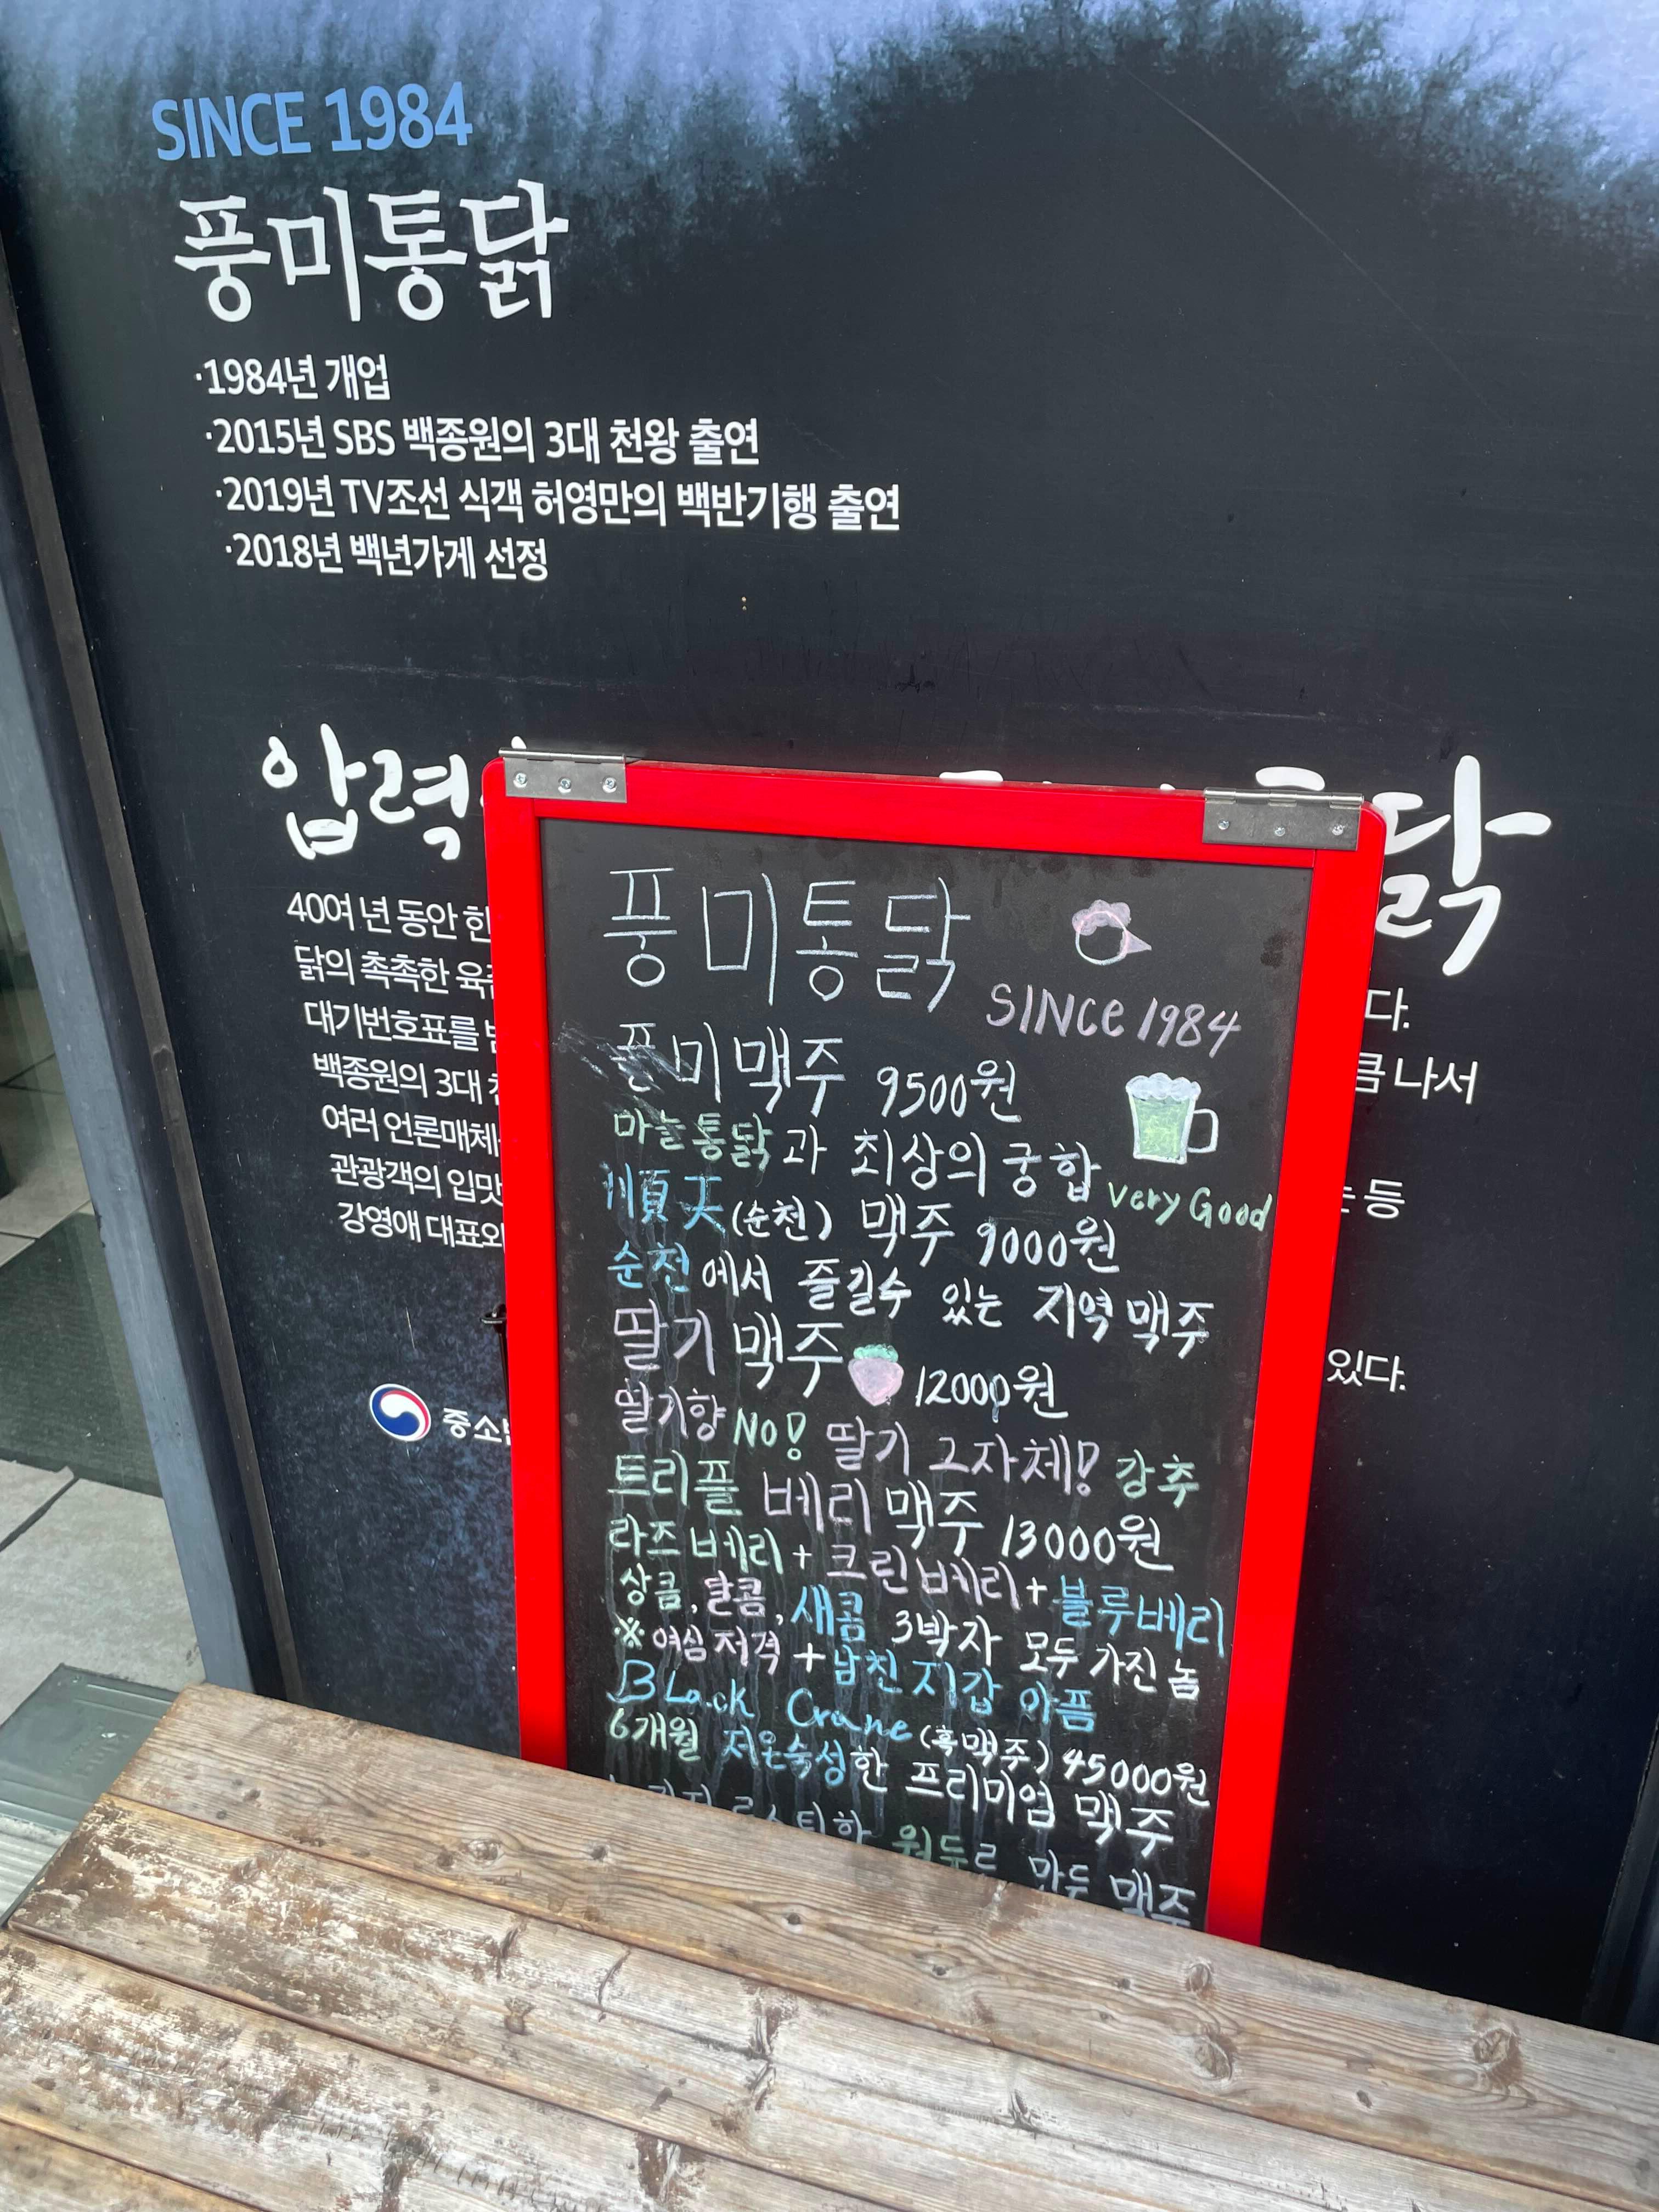 SINCE 1984
풍미통닭
·1984년 개업
·2015년 SBS 백종원의 3대 천왕 출연
·2019년 TV조선 식객 허영만의 백반기행 출연
·2018년 백년가게 선정
압력
닭
40여 년 동안 한
닭의 촉촉한 육
대기번호표를
백종원의 3대
여러 언론매체
관광객의 입맛
강영애 대표와
다.
큼 나서
등
있다.
중소
풍미통닭
SINCe 1984
풍미맥주 9500원
마늘통닭과 최상의 궁합
very Good
順天(순천) 맥주 9000원
순천에서 즐길수 있는 지역맥주
딸기맥주 12000원
딸기향 No! 딸기 그자체! 강추
트리플 베리맥주 13000원
라즈베리+크린베리+블루베리
상콤, 달콤, 새콤 3박자 모두 가진 놈
※여심저격+남친지갑 아픔
BLack Crane(흑맥주) 45000원
6개월 저온숙성한 프리미엄 맥주
맥주